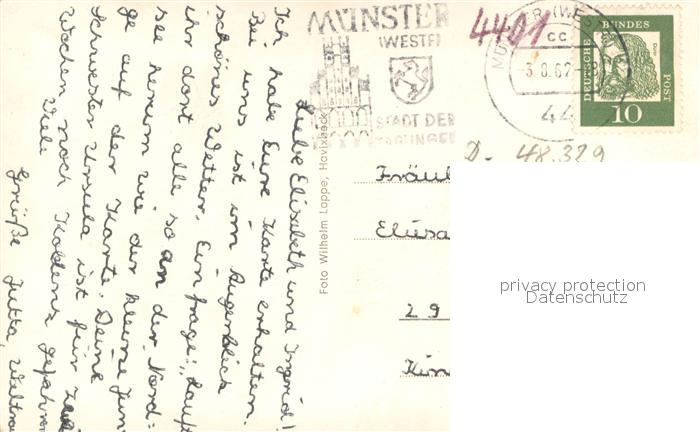 Liebe Elisabeth und Ingrid!
Ich habe Eure Karte erhalten.
Bei uns ist im Augenblick
schönes Wetter. Eine Frage: „Lauft
ihr dort alle so an der Nord=
see herum wie der kleine Jun
ge auf der Karte. Deine
Schwester Ursula ist für zwei
Wochen noch Koblenz gefahren
Viele
Grüße Jutta, Waltra
Foto Wilhelm Lappe, Havixbeck
MÜNSTER
(WESTF)
STADT DER
TAGUNGEN
4401
MÜNSTER (WEST
CC
-3.8.62
44
DEUTSCHE BUNDES POST
Dürer
10
D- 48.329
Fräul
Elisa
29
Kin
privacy protection
Datenschutz